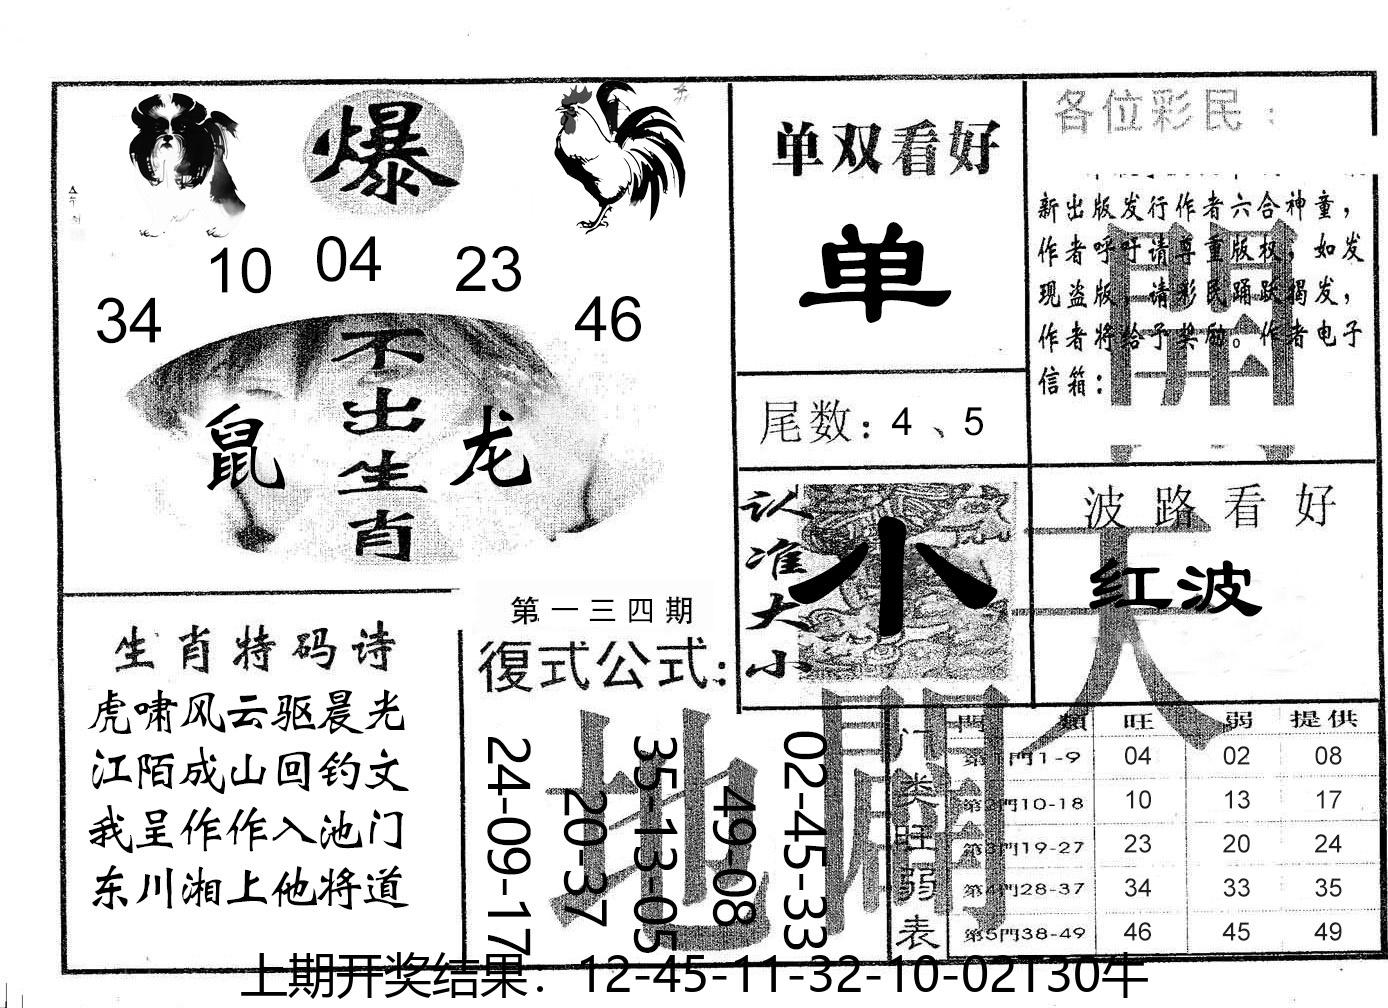 爆
10 04 23
34 46
不出生肖
鼠 龙
生肖特码诗
虎啸风云驱晨光
江陌成山回钓文
我呈作作入池门
东川湘上他将道
第一三四期
復式公式：
24-09-17
20-37
35-13-05
49-08
02-45-33
单双看好
单
尾数：4、5
认准大小
小
各位彩民：
新出版发行作者六合神童，
作者呼吁请尊重版权，如发
现盗版，请彩民踊跃揭发，
作者将给予奖励。作者电子
信箱：
波路看好
红波
天
地
門類 旺 弱 提供
第1門1-9 04 02 08
第2門10-18 10 13 17
第3門19-27 23 20 24
第4門28-37 34 33 35
第5門38-49 46 45 49
门类旺弱表
上期开奖结果：12-45-11-32-10-02T30牛